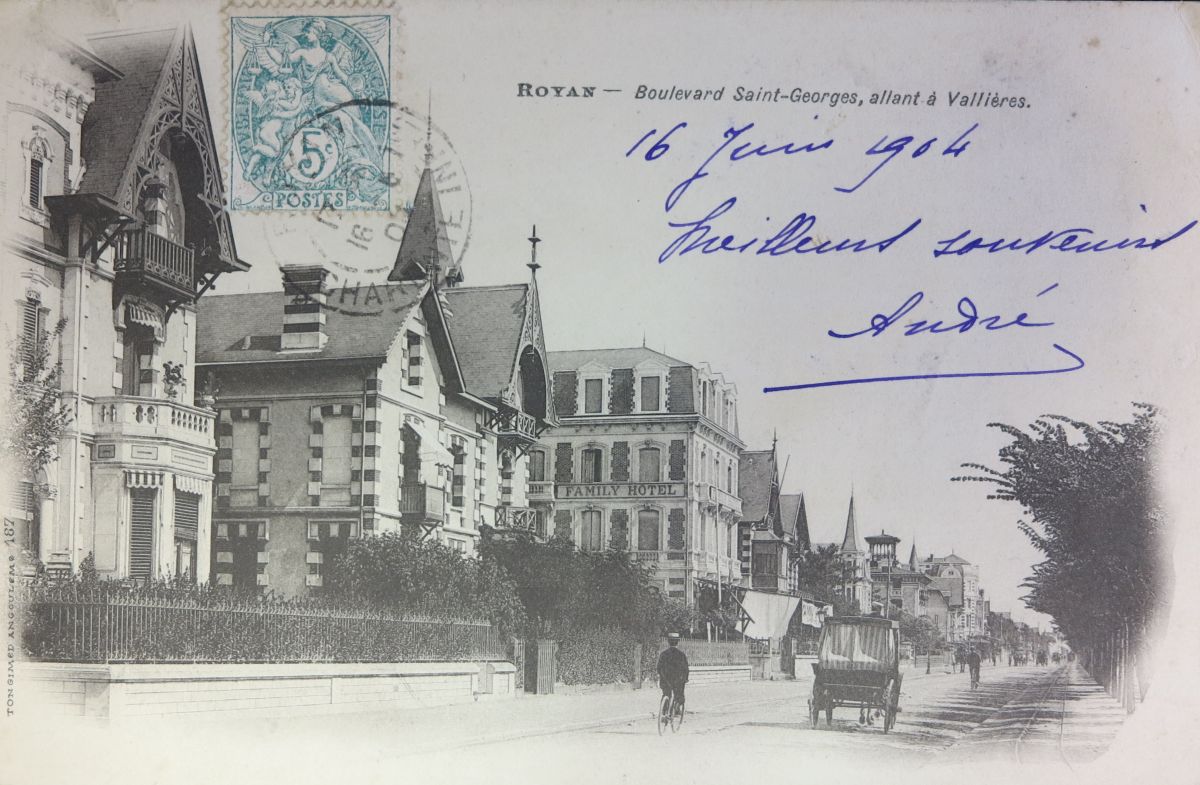 ROYAN — Boulevard Saint-Georges, allant à Vallières.
16 Juin 1904
Meilleurs souvenirs
André
5c
POSTES
FAMILY HOTEL
TON GIMED ANGOULEME 187